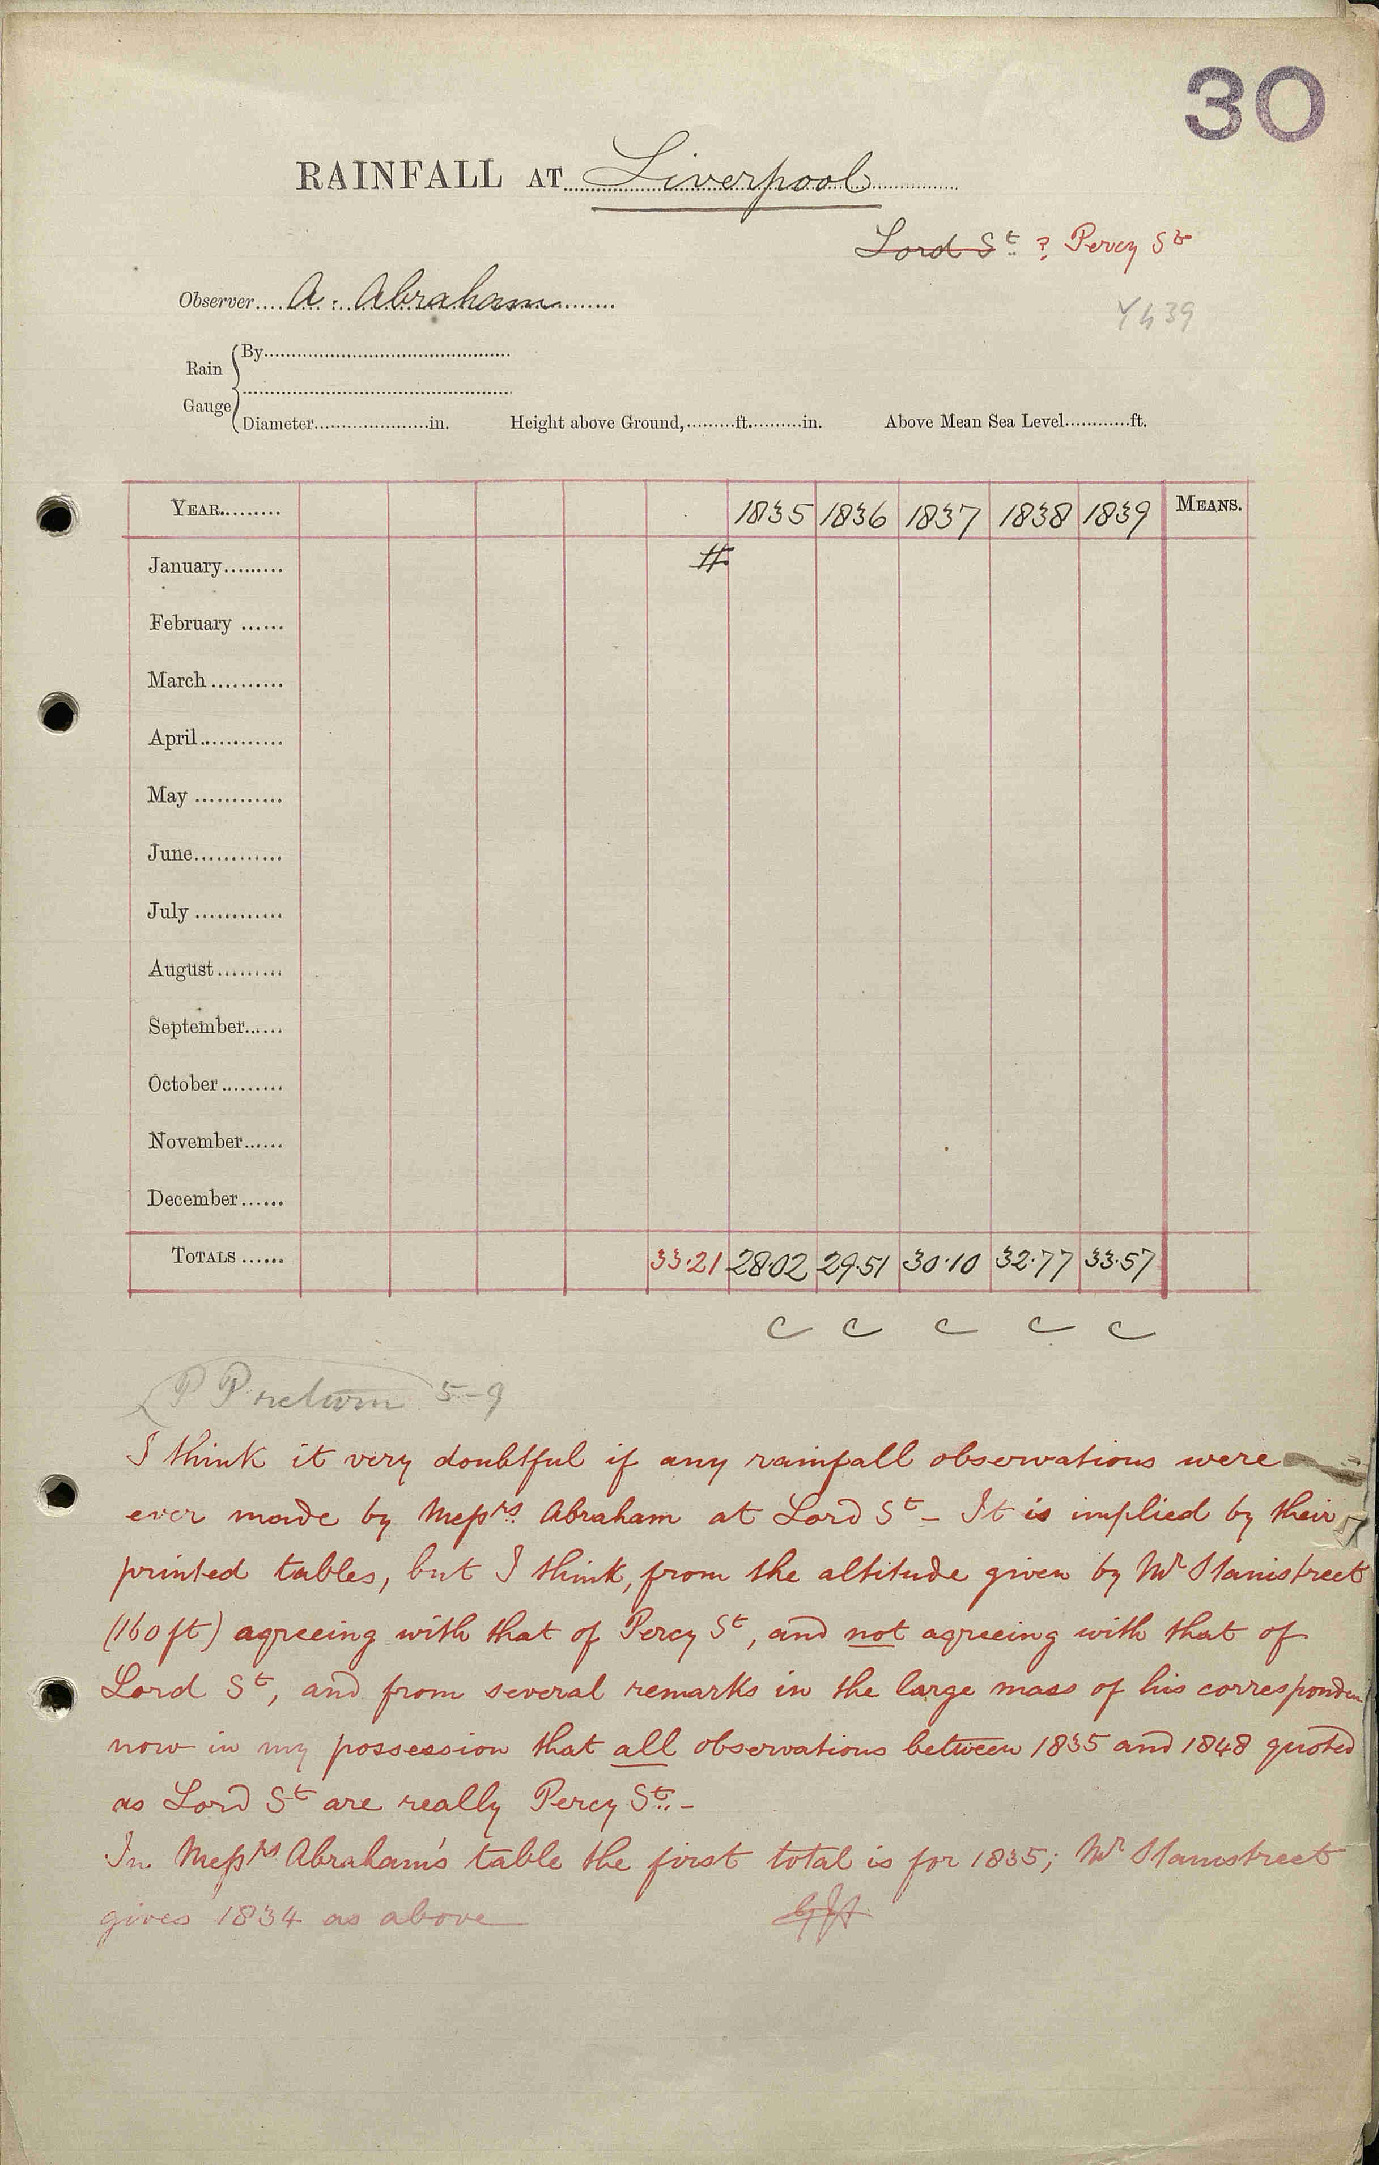 30
RAINFALL AT Liverpool
Lord St ? Percy St
Observer.... A. Abraham
Rain Gauge
By
Diameter in. Height above Ground, ft. in. Above Mean Sea Level ft.
YEAR 1835 1836 1837 1838 1839 MEANS.
January
February
March
April
May
June
July
August
September
October
November
December
TOTALS 33.21 28.02 29.51 30.10 32.77 33.57
C C C C C
P P return 5-9
I think it very doubtful if any rainfall observations were
ever made by Messrs. Abraham at Lord St - It is implied by their
printed tables, but I think, from the altitude given by Mr Stanistreet
(160 ft) agreeing with that of Percy St, and not agreeing with that of
Lord St, and from several remarks in the large mass of his
now in my possession that all observations between 1835 and 1848 quoted
as Lord St are really Percy St. -
In Messrs Abraham's table the first total is for 1835; Mr Stanistreet
gives 1834 as above